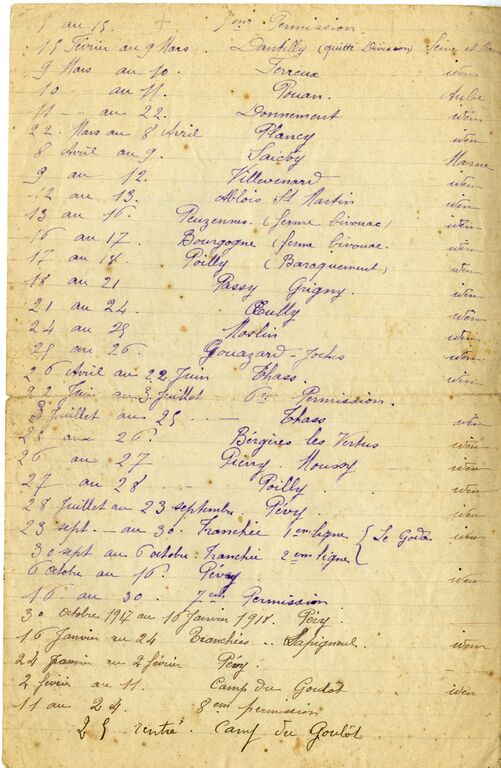 5 au 15 + 5em Permission.
15 Février au 9 Mars. Dantilly (quitté Division) Seine et
9 Mars au 10. Ferreux idem
10 -- au 11. Pouan. Aube
11 -- au 22. Donnement idem
22. Mars au 8 Avril Plancy idem
8 Avril au 9. Marne
9 au 12. Villevenard idem
12 au 13. Ablois St Martin idem
13 au 16 (ferme bivouac) idem
16 au 17. Bourgogne (ferme bivouac. idem
17 au 18. Poilly (Baraquement) idem
18 au 21 Passy Grigny. idem
21 au 24. Œuilly idem
24 au 25 Moslin idem
25 au 26. Gouazard - Joches idem
26 Avril au 22 Juin Thass. idem
22 Juin au 3 Juillet 6em Permission.
3 Juillet au 25 -- Thass idem
25 au 26? Bérgères les Vertus idem
26 au 27 Pierry. Moussy idem
27 au 28 Poilly. idem
28 Juillet au 23 septembre Pévy. idem
23 sept. - au 30. Tranchée 1em ligne { Le Godat idem
30 sept au 6 octobre. Tranchée 2em ligne {
6 octobre au 16? Pévy idem
16 au 30. 7em Permission.
30 Octobre 1917 au 16 Janvier 1918. Pévy.
16 Janvier au 24 Tranchées .. Sapigneul. idem
24 Janvier au 2 février Pévy.
2 février au 11. Camp du Goulot idem
11 au 24. 8em permission
25 rentré. Camp du Goulôt